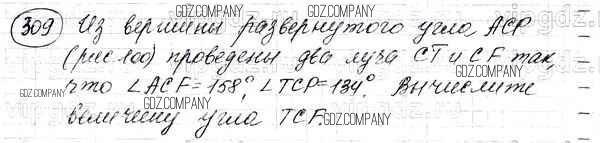 GDZ.COMPANY GDZ.COMPANY
309 Из вершины развернутого угла ACP
GDZ.COMPANY
(рис 100) проведены два луча CT и CF так,
GDZ.COMPANY
что ∠ACF=158°, ∠TCP=134°. Вычислите
GDZ.COMPANY GDZ.COMPANY
величину угла TCF.
GDZ.COMPANY